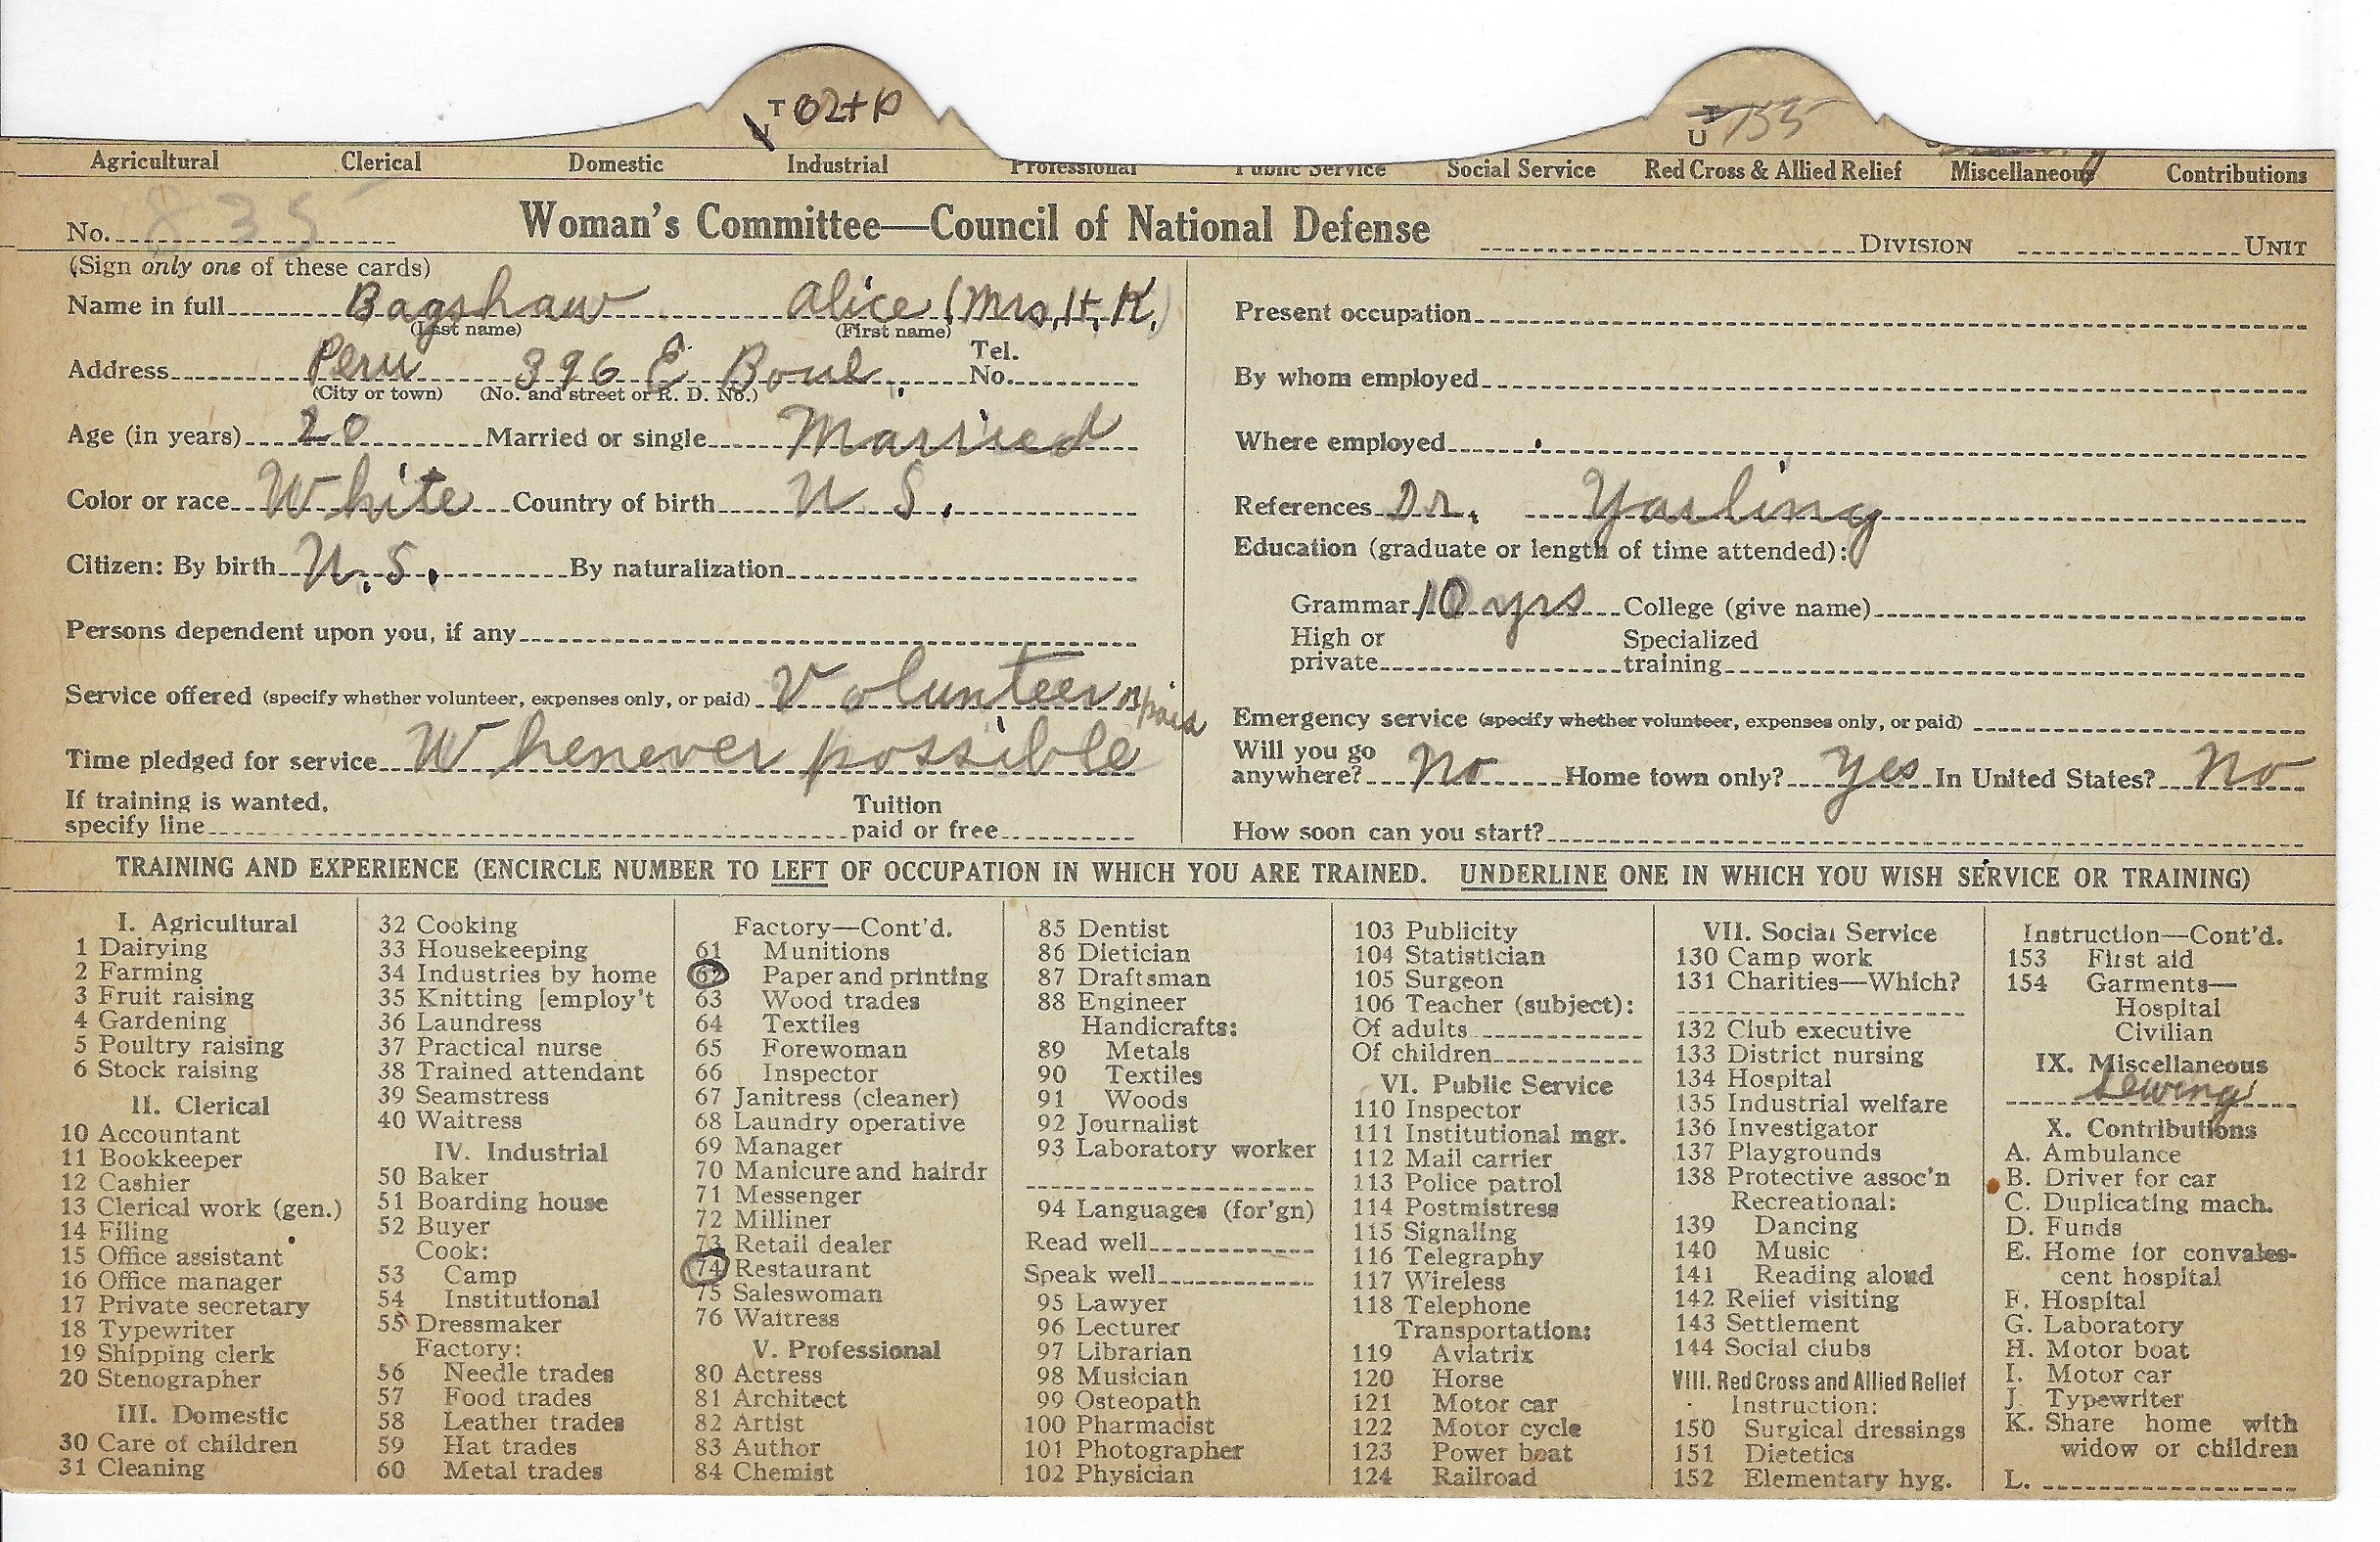 T 62 + P
U 155
Agricultural Clerical Domestic Industrial Professional Public Service Social Service Red Cross & Allied Relief Miscellaneous Contributions
No. 835 Woman's Committee—Council of National Defense DIVISION UNIT
(Sign only one of these cards)
Name in full Bagshaw Alice (Mrs. H. K.)
(Last name) (First name)
Address Peru 396 E Boul. Tel. No.
(City or town) (No. and street or R. D. No.)
Age (in years) 20 Married or single Married
Color or race White Country of birth U. S.
Citizen: By birth U. S. By naturalization
Persons dependent upon you, if any
Service offered (specify whether volunteer, expenses only, or paid) Volunteer paid
Time pledged for service Whenever possible
If training is wanted, specify line Tuition paid or free
Present occupation
By whom employed
Where employed
References Dr. Yarling
Education (graduate or length of time attended):
Grammar 10 yrs College (give name)
High or private Specialized training
Emergency service (specify whether volunteer, expenses only, or paid)
Will you go anywhere? No Home town only? Yes In United States? No
How soon can you start?
TRAINING AND EXPERIENCE (ENCIRCLE NUMBER TO LEFT OF OCCUPATION IN WHICH YOU ARE TRAINED. UNDERLINE ONE IN WHICH YOU WISH SERVICE OR TRAINING)
I. Agricultural
1 Dairying
2 Farming
3 Fruit raising
4 Gardening
5 Poultry raising
6 Stock raising
II. Clerical
10 Accountant
11 Bookkeeper
12 Cashier
13 Clerical work (gen.)
14 Filing
15 Office assistant
16 Office manager
17 Private secretary
18 Typewriter
19 Shipping clerk
20 Stenographer
III. Domestic
30 Care of children
31 Cleaning
32 Cooking
33 Housekeeping
34 Industries by home
35 Knitting [employ't
36 Laundress
37 Practical nurse
38 Trained attendant
39 Seamstress
40 Waitress
IV. Industrial
50 Baker
51 Boarding house
52 Buyer
Cook:
53 Camp
54 Institutional
55 Dressmaker
Factory:
56 Needle trades
57 Food trades
58 Leather trades
59 Hat trades
60 Metal trades
Factory—Cont'd.
61 Munitions
62 Paper and printing
63 Wood trades
64 Textiles
65 Forewoman
66 Inspector
67 Janitress (cleaner)
68 Laundry operative
69 Manager
70 Manicure and hairdr
71 Messenger
72 Milliner
73 Retail dealer
74 Restaurant
75 Saleswoman
76 Waitress
V. Professional
80 Actress
81 Architect
82 Artist
83 Author
84 Chemist
85 Dentist
86 Dietician
87 Draftsman
88 Engineer
Handicrafts:
89 Metals
90 Textiles
91 Woods
92 Journalist
93 Laboratory worker
94 Languages (for'gn)
Read well
Speak well
95 Lawyer
96 Lecturer
97 Librarian
98 Musician
99 Osteopath
100 Pharmacist
101 Photographer
102 Physician
103 Publicity
104 Statistician
105 Surgeon
106 Teacher (subject):
Of adults
Of children
VI. Public Service
110 Inspector
111 Institutional mgr.
112 Mail carrier
113 Police patrol
114 Postmistress
115 Signaling
116 Telegraphy
117 Wireless
118 Telephone
Transportation:
119 Aviatrix
120 Horse
121 Motor car
122 Motor cycle
123 Power boat
124 Railroad
VII. Social Service
130 Camp work
131 Charities—Which?
132 Club executive
133 District nursing
134 Hospital
135 Industrial welfare
136 Investigator
137 Playgrounds
138 Protective assoc'n
Recreational:
139 Dancing
140 Music
141 Reading aloud
142 Relief visiting
143 Settlement
144 Social clubs
VIII. Red Cross and Allied Relief
Instruction:
150 Surgical dressings
151 Dietetics
152 Elementary hyg.
Instruction—Cont'd.
153 First aid
154 Garments—
Hospital
Civilian
IX. Miscellaneous
Sewing
X. Contributions
A. Ambulance
B. Driver for car
C. Duplicating mach.
D. Funds
E. Home for convales-
cent hospital
F. Hospital
G. Laboratory
H. Motor boat
I. Motor car
J. Typewriter
K. Share home with
widow or children
L.